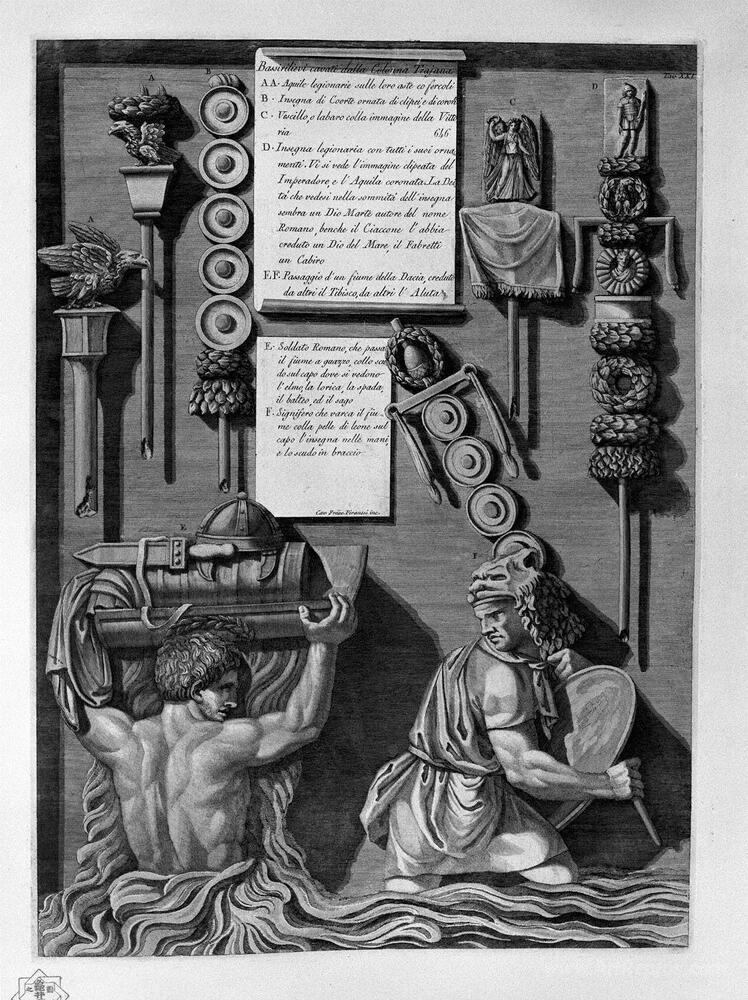 Tav. XXI.
A
B
C
D
A
Bassirilievi cavati dalla Colonna Trajana
A A · Aquile legionarie sulle loro aste co fercoli
B · Insegna di Coorte ornata di clipei e di coron
C · Vescillo, o labaro colla immagine della Vitto
ria 646
D · Insegna legionaria con tutti i suoi orna
menti. Vi si vede l'immagine clipeata del
Imperadore, e l'Aquila coronata. La Dei
tà che vedesi nella sommità dell'insegna
sembra un Dio Marte autore del nome
Romano, benche il Ciaccone l'abbia
creduto un Dio del Mare, il Fabretti
un Cabiro
E F · Passaggio d'un fiume della Dacia, creduto
da altri il Tibisco, da altri l'Aluta
E · Soldato Romano, che passa
il fiume a guazzo, collo scu
do sul capo dove si vedono
l'elmo, la lorica, la spada,
il balteo, ed il sago
F · Signifero che varca il fiu
me colla pelle di leone sul
capo l'insegna nelle mani,
e lo scudo in braccio
Cav. Piranesi inc.
E
F